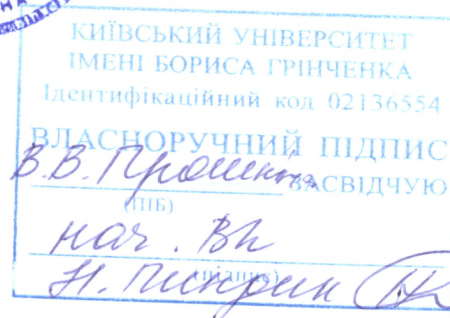 КИЇВСЬКИЙ УНІВЕРСИТЕТ
ІМЕНІ БОРИСА ГРІНЧЕНКА
Ідентифікаційний код 02136554
ВЛАСНОРУЧНИЙ ПІДПИС
В.В. Прошкіна ЗАСВІДЧУЮ
(ПІБ)
нач. Вк
(підпис)
Н.